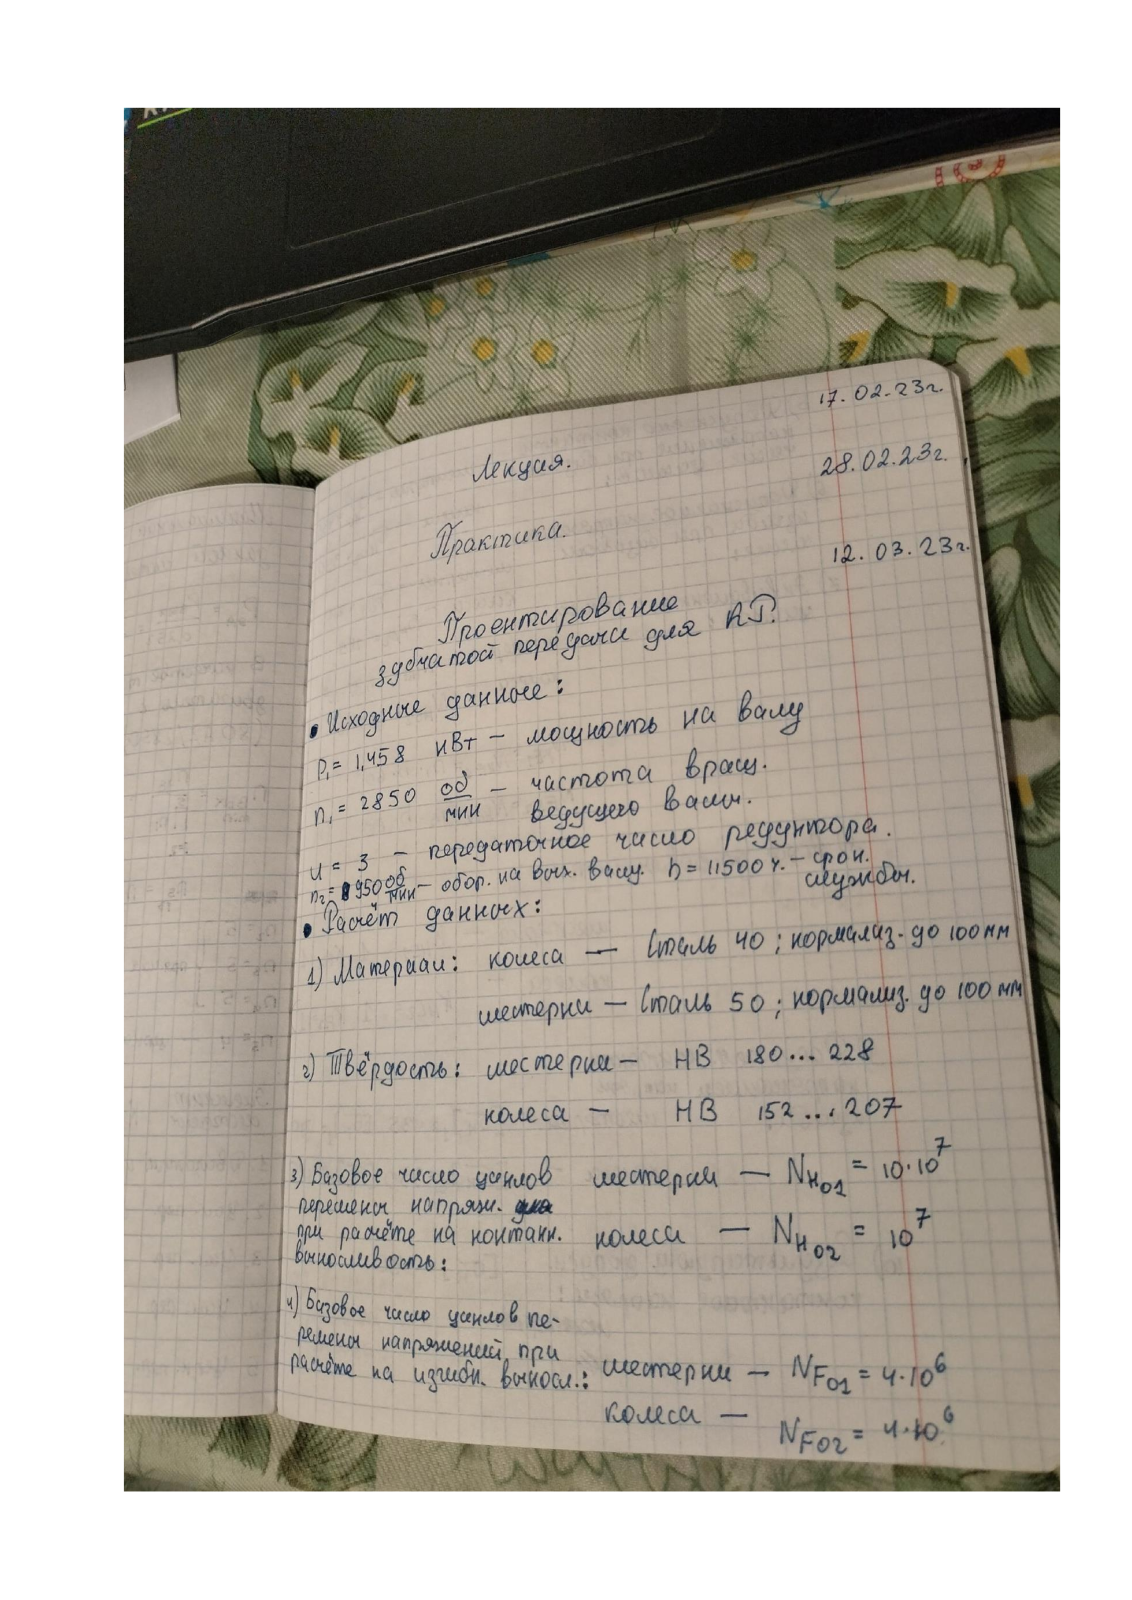 17.02.23г.
Лекция.
28.02.23г.
Практика.
12.03.23г.
Проектирование
зубчатой передачи для
• Исходные данные:
P₁ = 1,458 кВт — мощность на валу
n₁ = 2850 об/мин — частота вращ.
ведущего валы.
u = 3 — передаточное число редуктора.
n₂ = 950 об/мин — обор. на вых. валу. h = 11500 ч. — срок.
службы.
• Расчёт данных:
1) Материал: колеса — Сталь 40; нормализ. до 100 мм
шестерни — Сталь 50; нормализ. до 100 мм
2) Твёрдость: шестерна — HB 180...228
колеса — HB 152...207
3) Базовое число циклов шестерни — N_H01 = 10·10⁷
перемены напряж.
при расчёте на контакн. колеса — N_H02 = 10⁷
выносливость:
4) Базовое число циклов пе-
ремены напряжений при
расчёте на изгибн. выносл.: шестерни — N_F01 = 4·10⁶
колеса — N_F02 = 4·10⁶